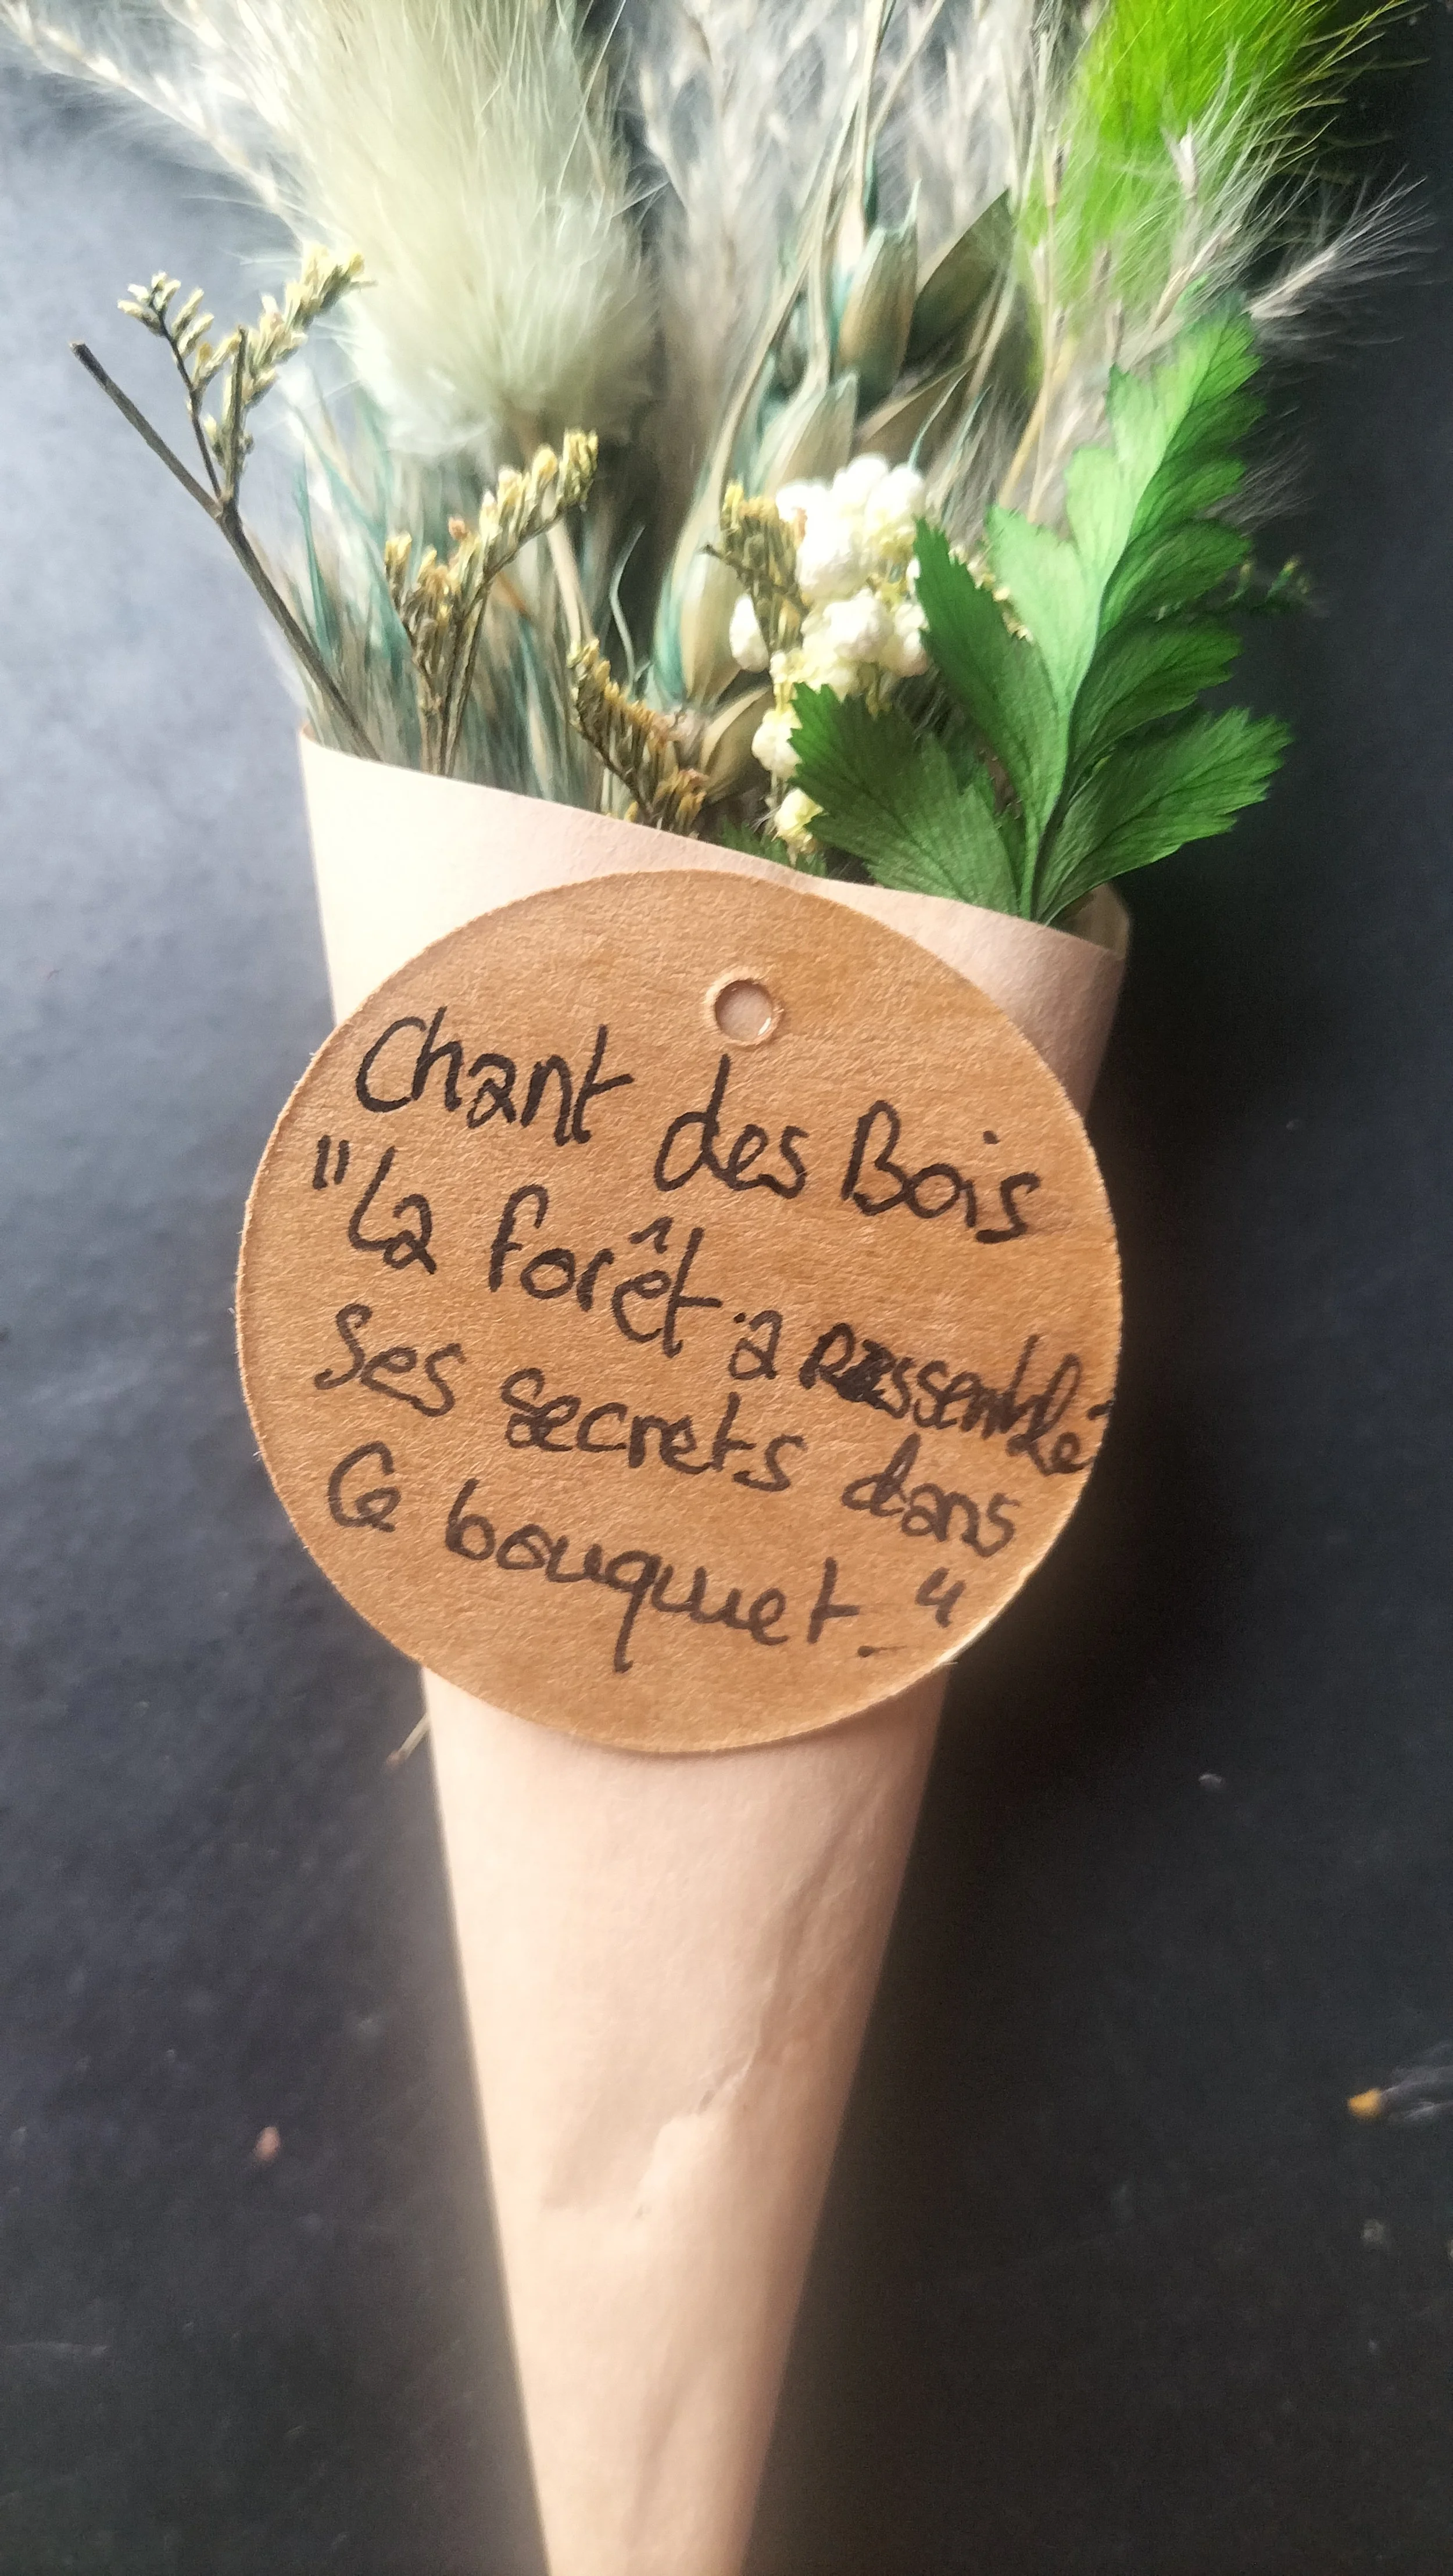 Chant des Bois
"La forêt a rassemblé
ses secrets dans
ce bouquet."